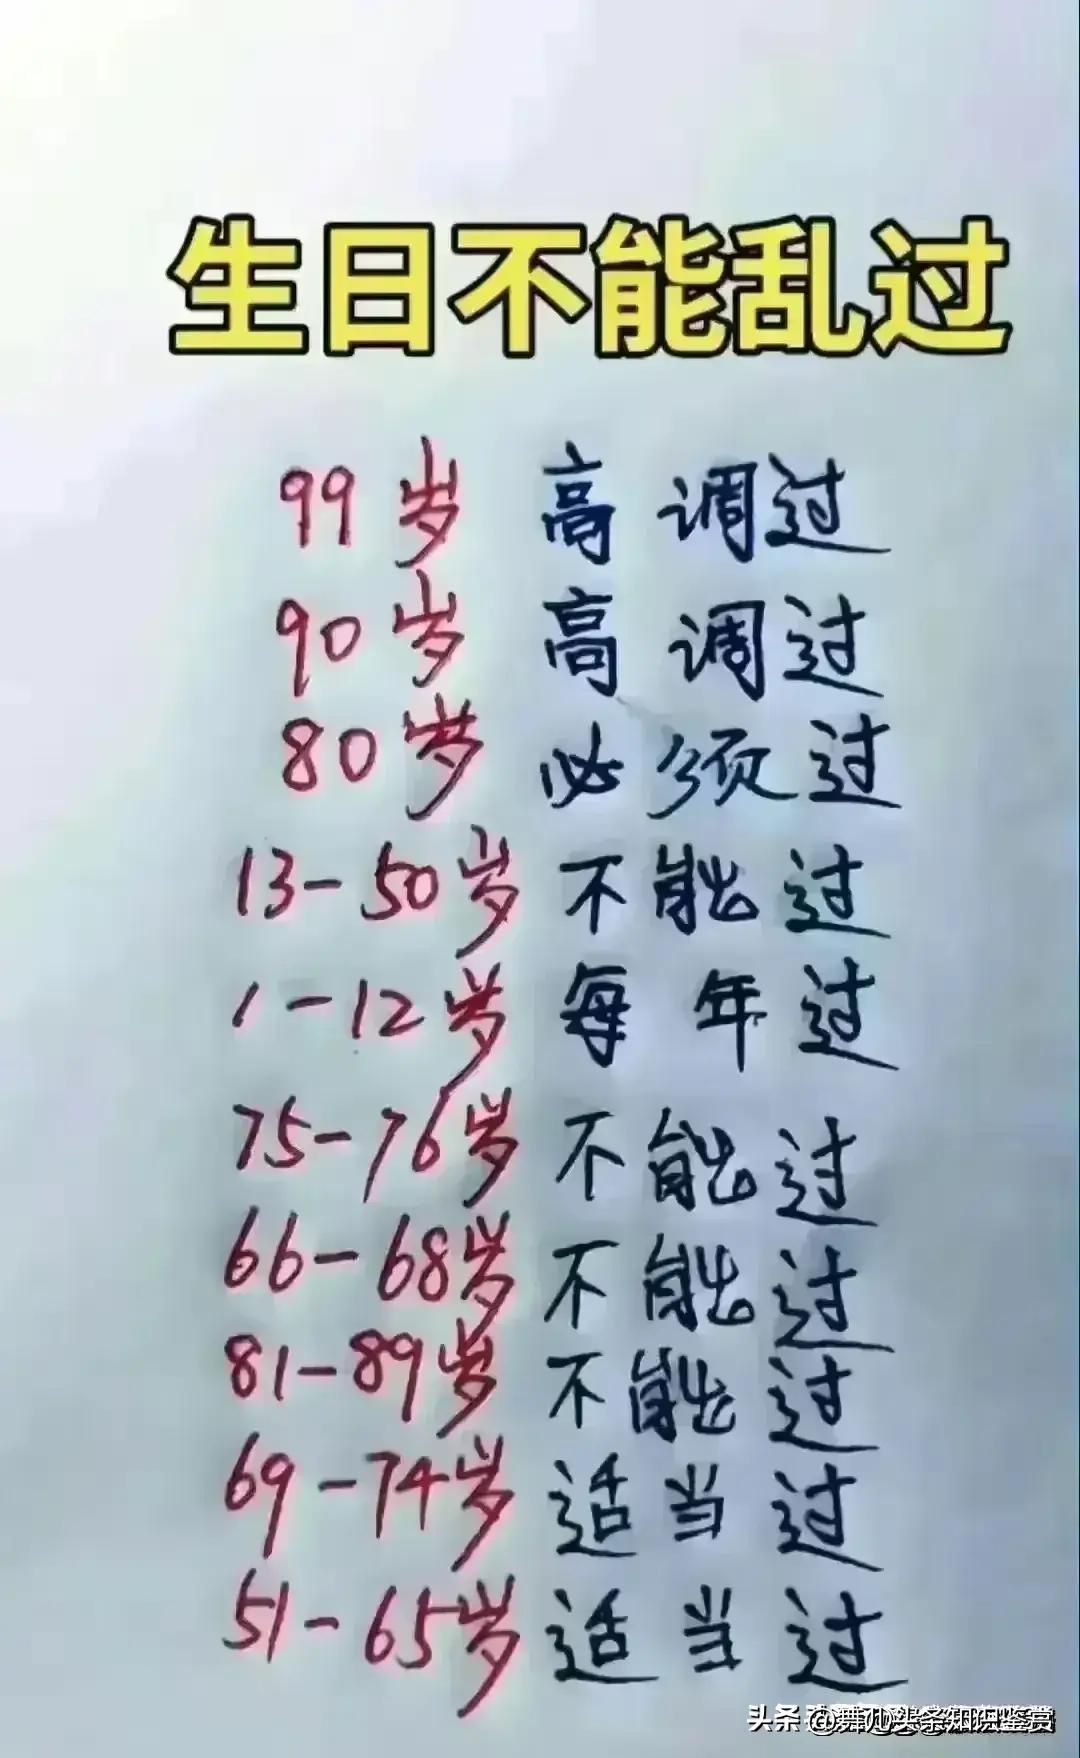 生日不能乱过
99岁 高调过
90岁 高调过
80岁 必须过
13-50岁 不能过
1-12岁 每年过
75-76岁 不能过
66-68岁 不能过
81-89岁 不能过
69-74岁 适当过
51-65岁 适当过
头条 @舞儿头条知识鉴赏